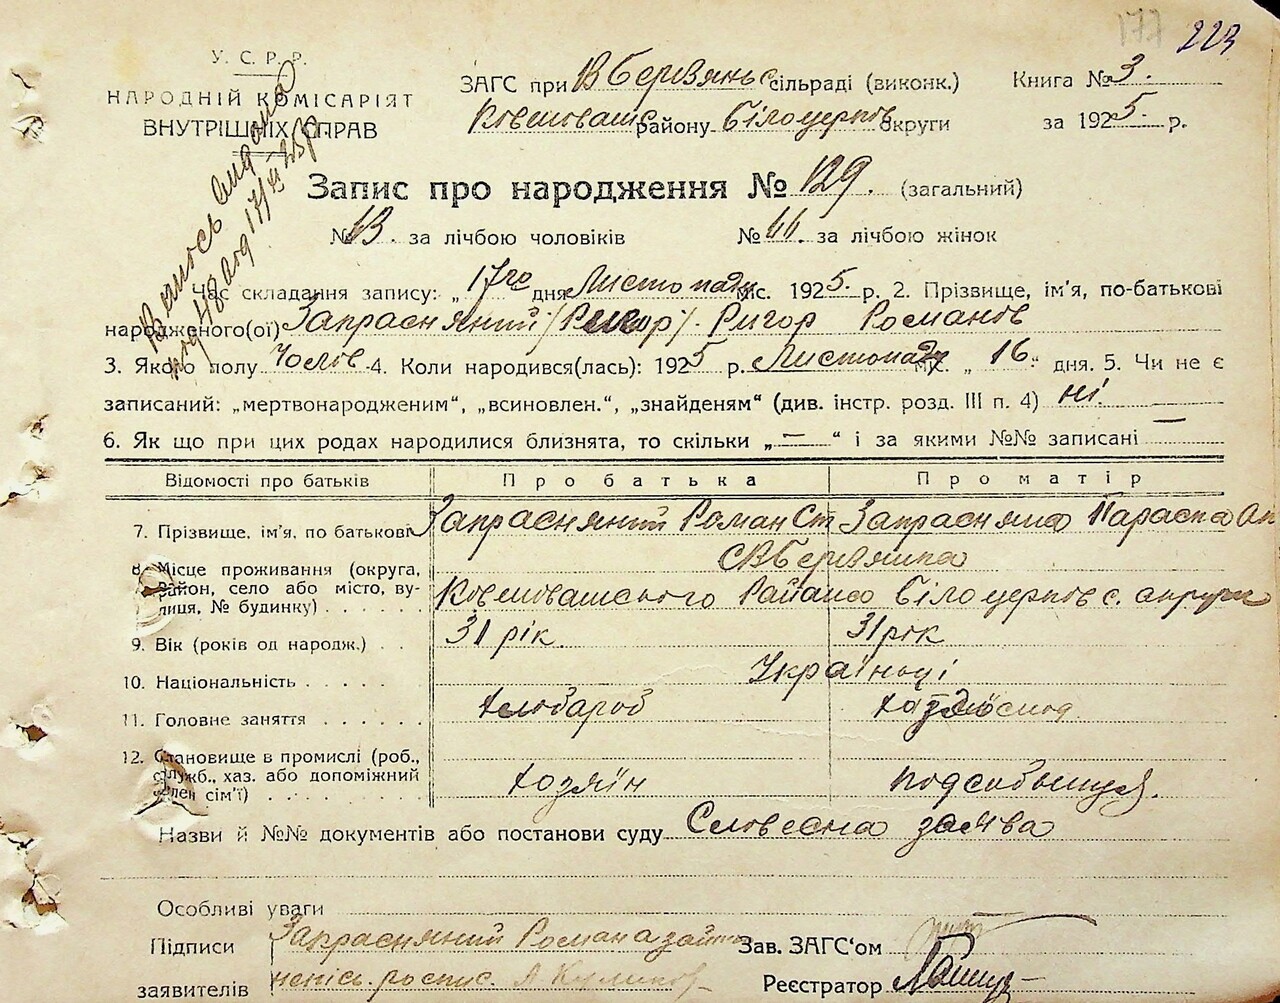 177 223
У. С. Р. Р.
НАРОДНІЙ КОМІСАРІЯТ
ВНУТРІШНІХ СПРАВ
ЗАГС при В Берв'янс сільраді (виконк.)
района Білоцерков округи
Книга № 3.
за 1925 р.
Випись видана
под 17/XI 25 р.
Запис про народження № 129. (загальний)
№ за лічбою чоловіків
№ за лічбою жінок
Час складання запису: „17го дня Листопада міс. 1925. р. 2. Прізвище, ім'я, по-батькові
народженого(ої) Запрасняний /Ригор/. Ригор Романов
3. Якого полу Чолов 4. Коли народився(лась): 1925 р. Листопад міс. „16." дня. 5. Чи не є
записаний: „мертвонародженим“, „всиновлен.“, „знайденям“ (див. інстр. розд. III п. 4) ні
6. Як що при цих родах народилися близнята, то скільки „—“ і за якими №№ записані —
Відомості про батьків
Про батька
Про матір
7. Прізвище, ім'я, по батькові Запрасняний Роман Ст Запрасняна Параска
8. Місце проживання (округа,
район, село або місто, ву-
лиця, № будинку)
Району Білоцерковс. округи
9. Вік (років од народж.) 31 рік. 31 рок
10. Національність Українці
11. Головне заняття Хлібороб
12. Становище в промислі (роб.,
служб., хаз. або допоміжний
член сім'ї) хозяїн
Назви й №№ документів або постанови суду Словесна заява
Особливі уваги
Підписи Запрасняний Роман
заявителів роспис.
Зав. ЗАГС'ом
Реєстратор